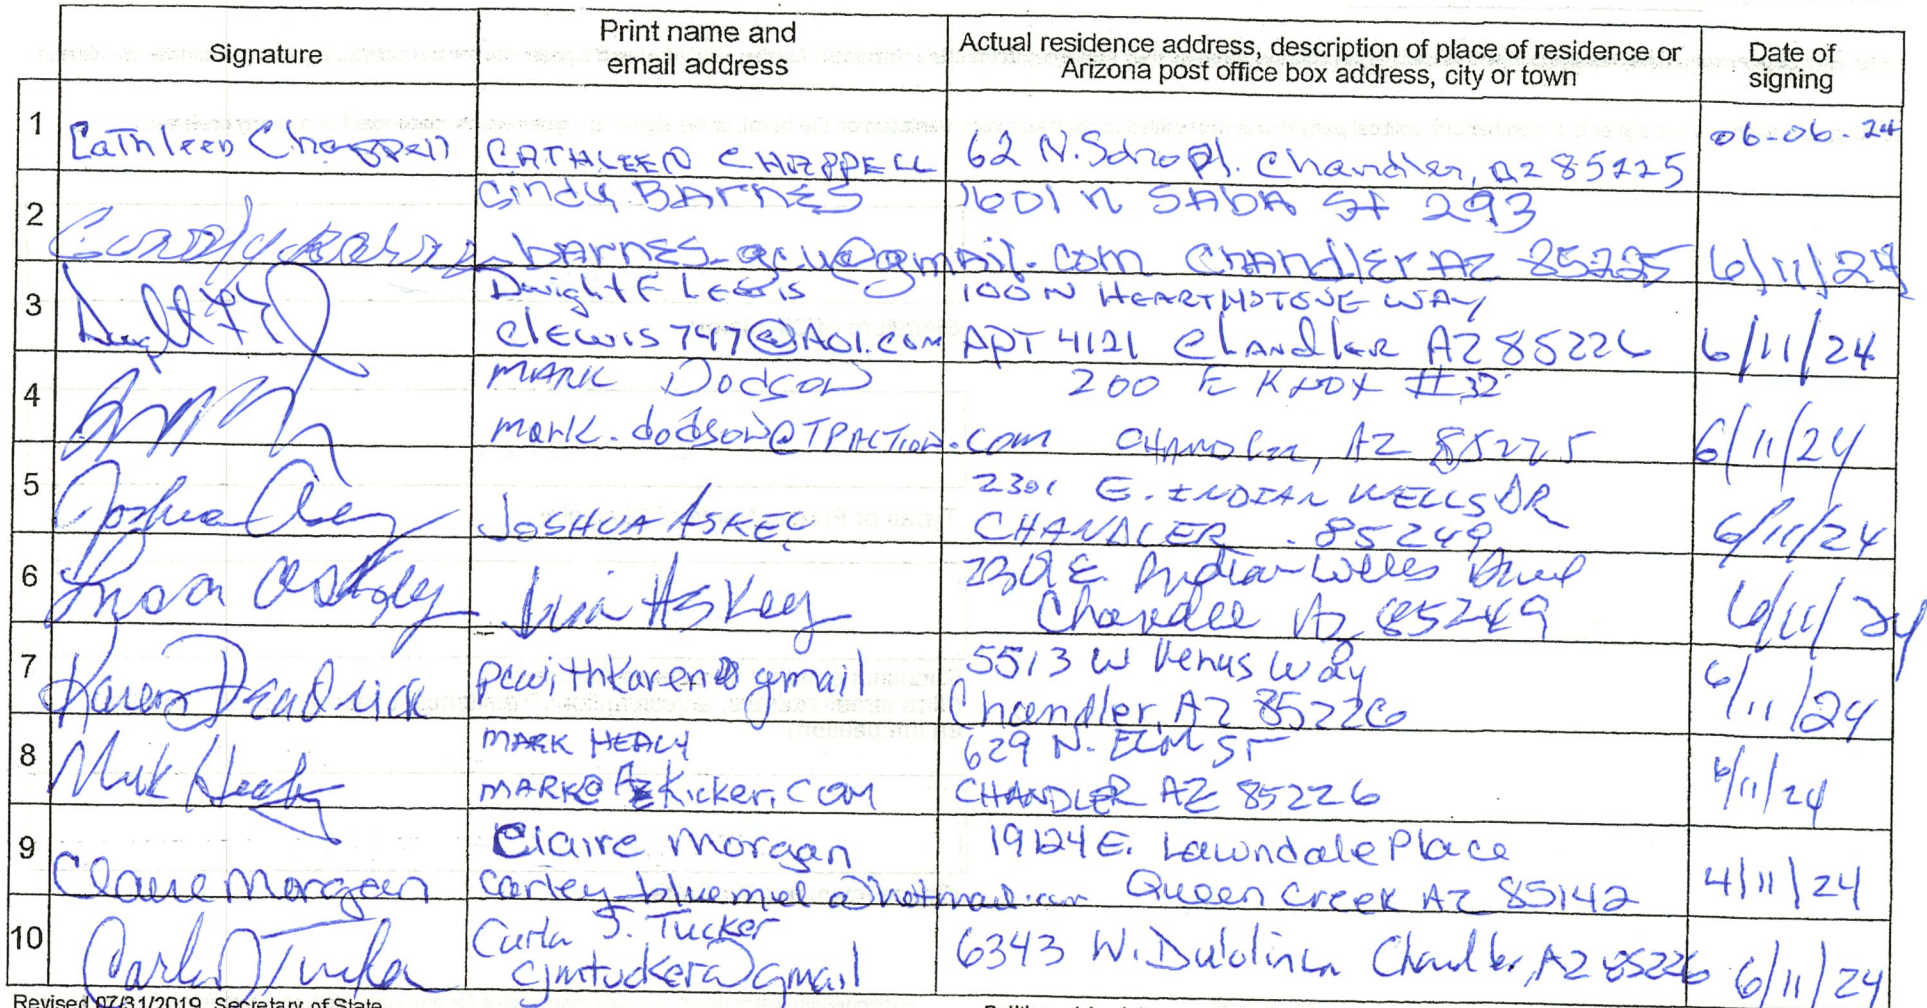 Signature
Print name and
email address
Actual residence address, description of place of residence or
Arizona post office box address, city or town
Date of
signing
1
Cathleen Chappell
CATHLEEN CHAPPELL
62 N. Pl. Chandler, AZ 85225
06-06-24
2
Cindy BARNES
1601 N SABA St 293
BARNES_gcu@gmail.com CHANdlEr AZ 85225
6/11/24
3
Dwight F LEWIS
100 N HEARTHSTONE WAY
clewis747@AOl.COM
APT 4121 CHANdlER AZ 85226
6/11/24
4
MARK DODSON
200 E KNOX #32
mark.dodson@TPACTION.com
CHANDLER, AZ 85225
6/11/24
5
Joshua
JOSHUA ASKEY
2301 E. INDIAN WELLS DR
CHANDLER . 85249
6/11/24
6
Askey
Askey
E. Indian Wells
Chandler Az 85249
6/11/24
7
Karen
pcwithkaren@gmail
5513 W Venus Way
Chandler, AZ 85226
6/11/24
8
Mark Healy
MARK HEALY
MARK@AZKicker.COM
629 N. ELM ST
CHANDLER AZ 85226
6/11/24
9
Claire Morgan
Claire Morgan
carley_bluemel@hotmail.com
19124 E. Lawndale Place
Queen Creek AZ 85142
4/11/24
10
Carla J Tucker
Carla J. Tucker
cjmtucker@gmail
6343 W. Chandler, AZ 85226
6/11/24
Revised 07/31/2019, Secretary of State